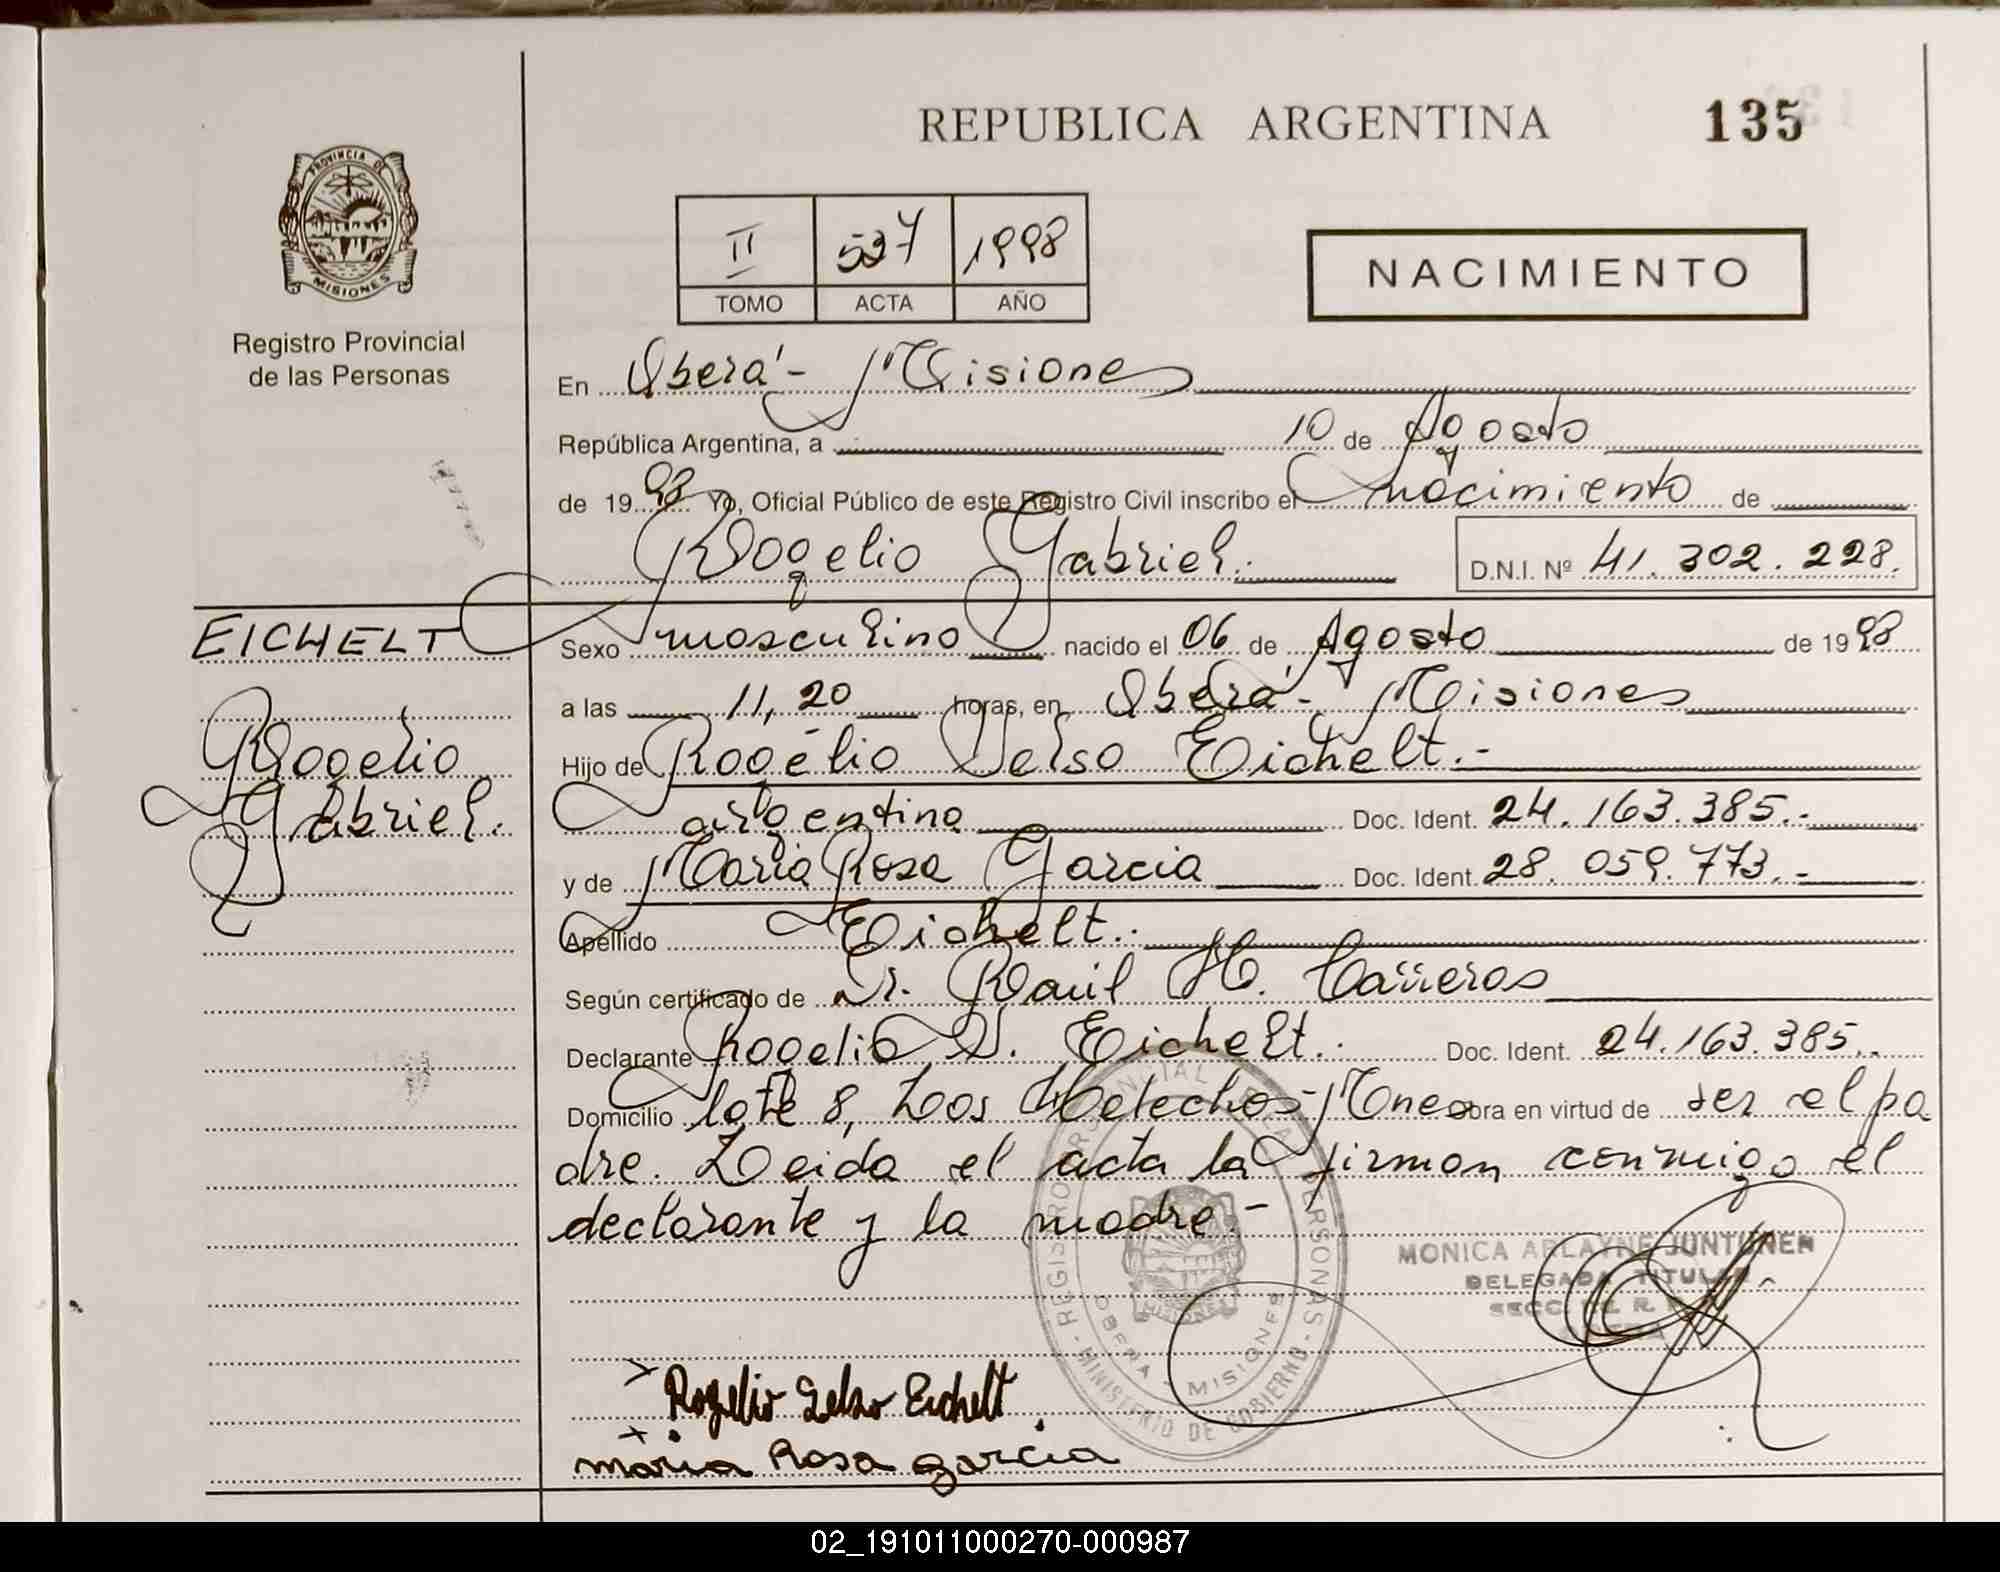 REPUBLICA ARGENTINA
135
PROVINCIA DE
MISIONES
Registro Provincial
de las Personas
II 527 1998
TOMO ACTA AÑO
NACIMIENTO
En Oberá - Misiones
República Argentina, a 10 de Agosto
de 1998 Yo, Oficial Público de este Registro Civil inscribo el nacimiento de
Rogelio Gabriel.- D.N.I. Nº 41.302.228.
EICHELT
Rogelio
Gabriel.
Sexo masculino nacido el 06 de Agosto de 1998
a las 11,20 horas, en Oberá - Misiones
Hijo de Rogelio Selso Eichelt.-
argentino Doc. Ident. 24.163.385.-
y de María Rosa Garcia Doc. Ident. 28.059.773.-
Apellido Eichelt.-
Según certificado de Dr. Raúl H. Carreros
Declarante Rogelio S. Eichelt.- Doc. Ident. 24.163.385.
Domicilio lote 8, Los Helechos-Mnes obra en virtud de ser el pa
dre. Leida el acta la firman conmigo el
declarante y la madre.-
REGISTRO PROVINCIAL DE LAS PERSONAS
MINISTERIO DE GOBIERNO
OBERA - MISIONES
MONICA ARLAYNE JUNTUNEN
DELEGADA TITULAR
Rogelio Selso Eichelt
maria Rosa garcia
02_191011000270-000987